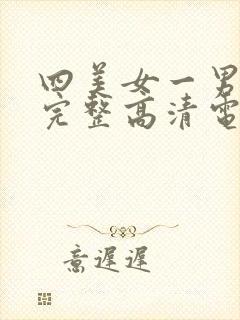 四美女一男
完整高清電
意遲遲